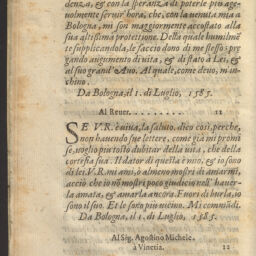 denza, & con la speranza di poterle più age-
uolmente seruir' hora, che, con la venuta mia a
Bologna, mi son maggiormente accostato alla
sua altissima protettione. Della quale humilmẽ
te supplicandola, le faccio dono di me stesso; pre
gando augumento di vita, & di stato à Lei, &
al suo grand' Auo. Al quale, come deuo, m'in-
chino.
Da Bologna, il 1. di Luglio, 1585.
Al Reuer. 11
SE V.R. è uiua, la saluto, dico così, perche,
non hauendo sue lettere, come già mi promi
se, uoglio piu tosto dubitar della uita, che della
cortesia sua. Il dator di questa è mio, & io sono
di lei. V.R. mi ami, ò almeno mostri di amarmi,
acciò che io nõ mostri poco giudicio nell' hauer-
la amata, & amarla ancora. Fuori di burla, io
sono il suo. Et le sono piu uicino. Mi commãdi.
Da Bologna, il 1. di Luglio, 1585.
Al Sig. Agostino Michele.
à Vinetia. 12